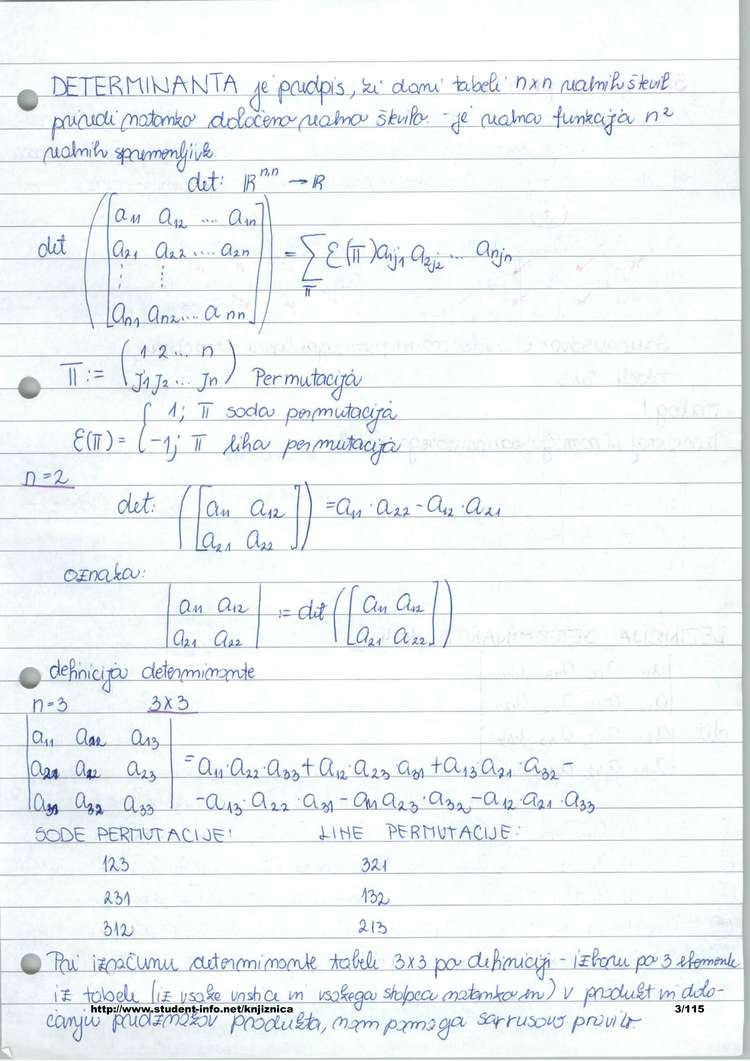 DETERMINANTA je predpis, ki dani tabeli nxn realnih števil
priredi natanko določeno realno število. -je realna funkcija n²
realnih spremenljivk.
det: ℝⁿ,ⁿ → ℝ
det ([a11 a12 .... a1n
a21 a22 .... a2n
⋮ ⋮
an1 an2 ... ann]) = ∑π ε(π) a1j1 a2j2 ... anjn
π := (1 2 ... n
j1 j2 ... jn) Permutacija
ε(π) = { 1; π soda permutacija
-1; π liha permutacija
n=2
det: ([a11 a12
a21 a22]) = a11 · a22 - a12 · a21
oznaka:
|a11 a12
a21 a22| := det ([a11 a12
a21 a22])
definicija determinante
n=3 3x3
|a11 a12 a13
a21 a22 a23
a31 a32 a33| = a11·a22·a33 + a12·a23 a31 + a13 a21·a32 -
-a13·a22·a31 - a11 a23·a32 - a12·a21·a33
SODE PERMUTACIJE: LIHE PERMUTACIJE:
123 321
231 132
312 213
Pri izračunu determinante tabele 3x3 po definiciji - izboru po 3 elemente
iz tabele (iz vsake vrstice in vsakega stolpca natanko en) v produkt in dolo-
čanju predznakov produkta, nam pomaga sarrusovo pravilo.
http://www.student-info.net/knjiznica 3/115